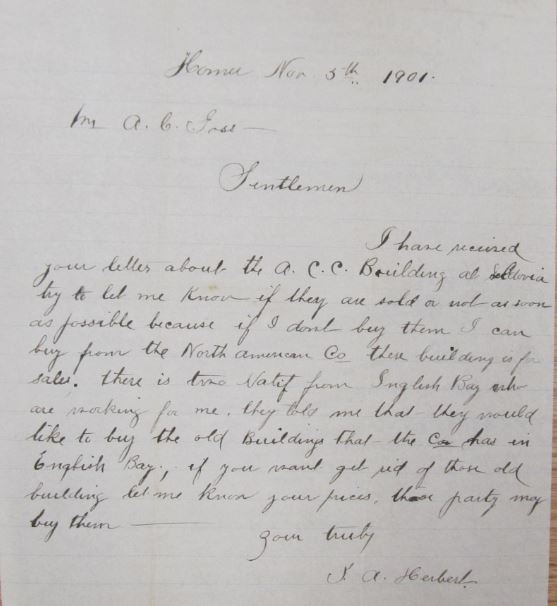 Homer Nov 5th 1901.
Mr A. C. Goss
Gentlemen
I have recived
your letter about the A. C. C. Building at Seldovia
try to let me Know if they are sold or not as soon
as possible because if I dont buy them I can
buy from the North american Co there building is for
sales. there is two Natif from English Bay who
are working for me. they tols me that they would
like to buy the old Buildings that the Co has in
English Bay., if you want get rid of those old
building let me Know your prices. those party may
buy them
your truly
A. Herbert